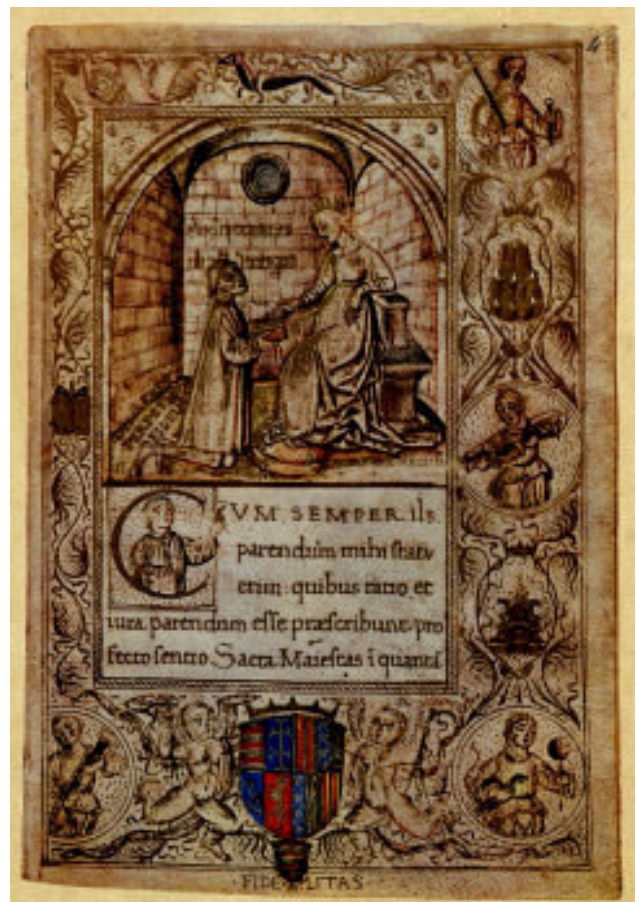 4
CVM SEMPER iis
parendum mihi statu
erim: quibus ratio et
iura parendum esse præscribunt: pro
fecto sentio Sacra Maiestas ĩ quantis
FIDELITAS